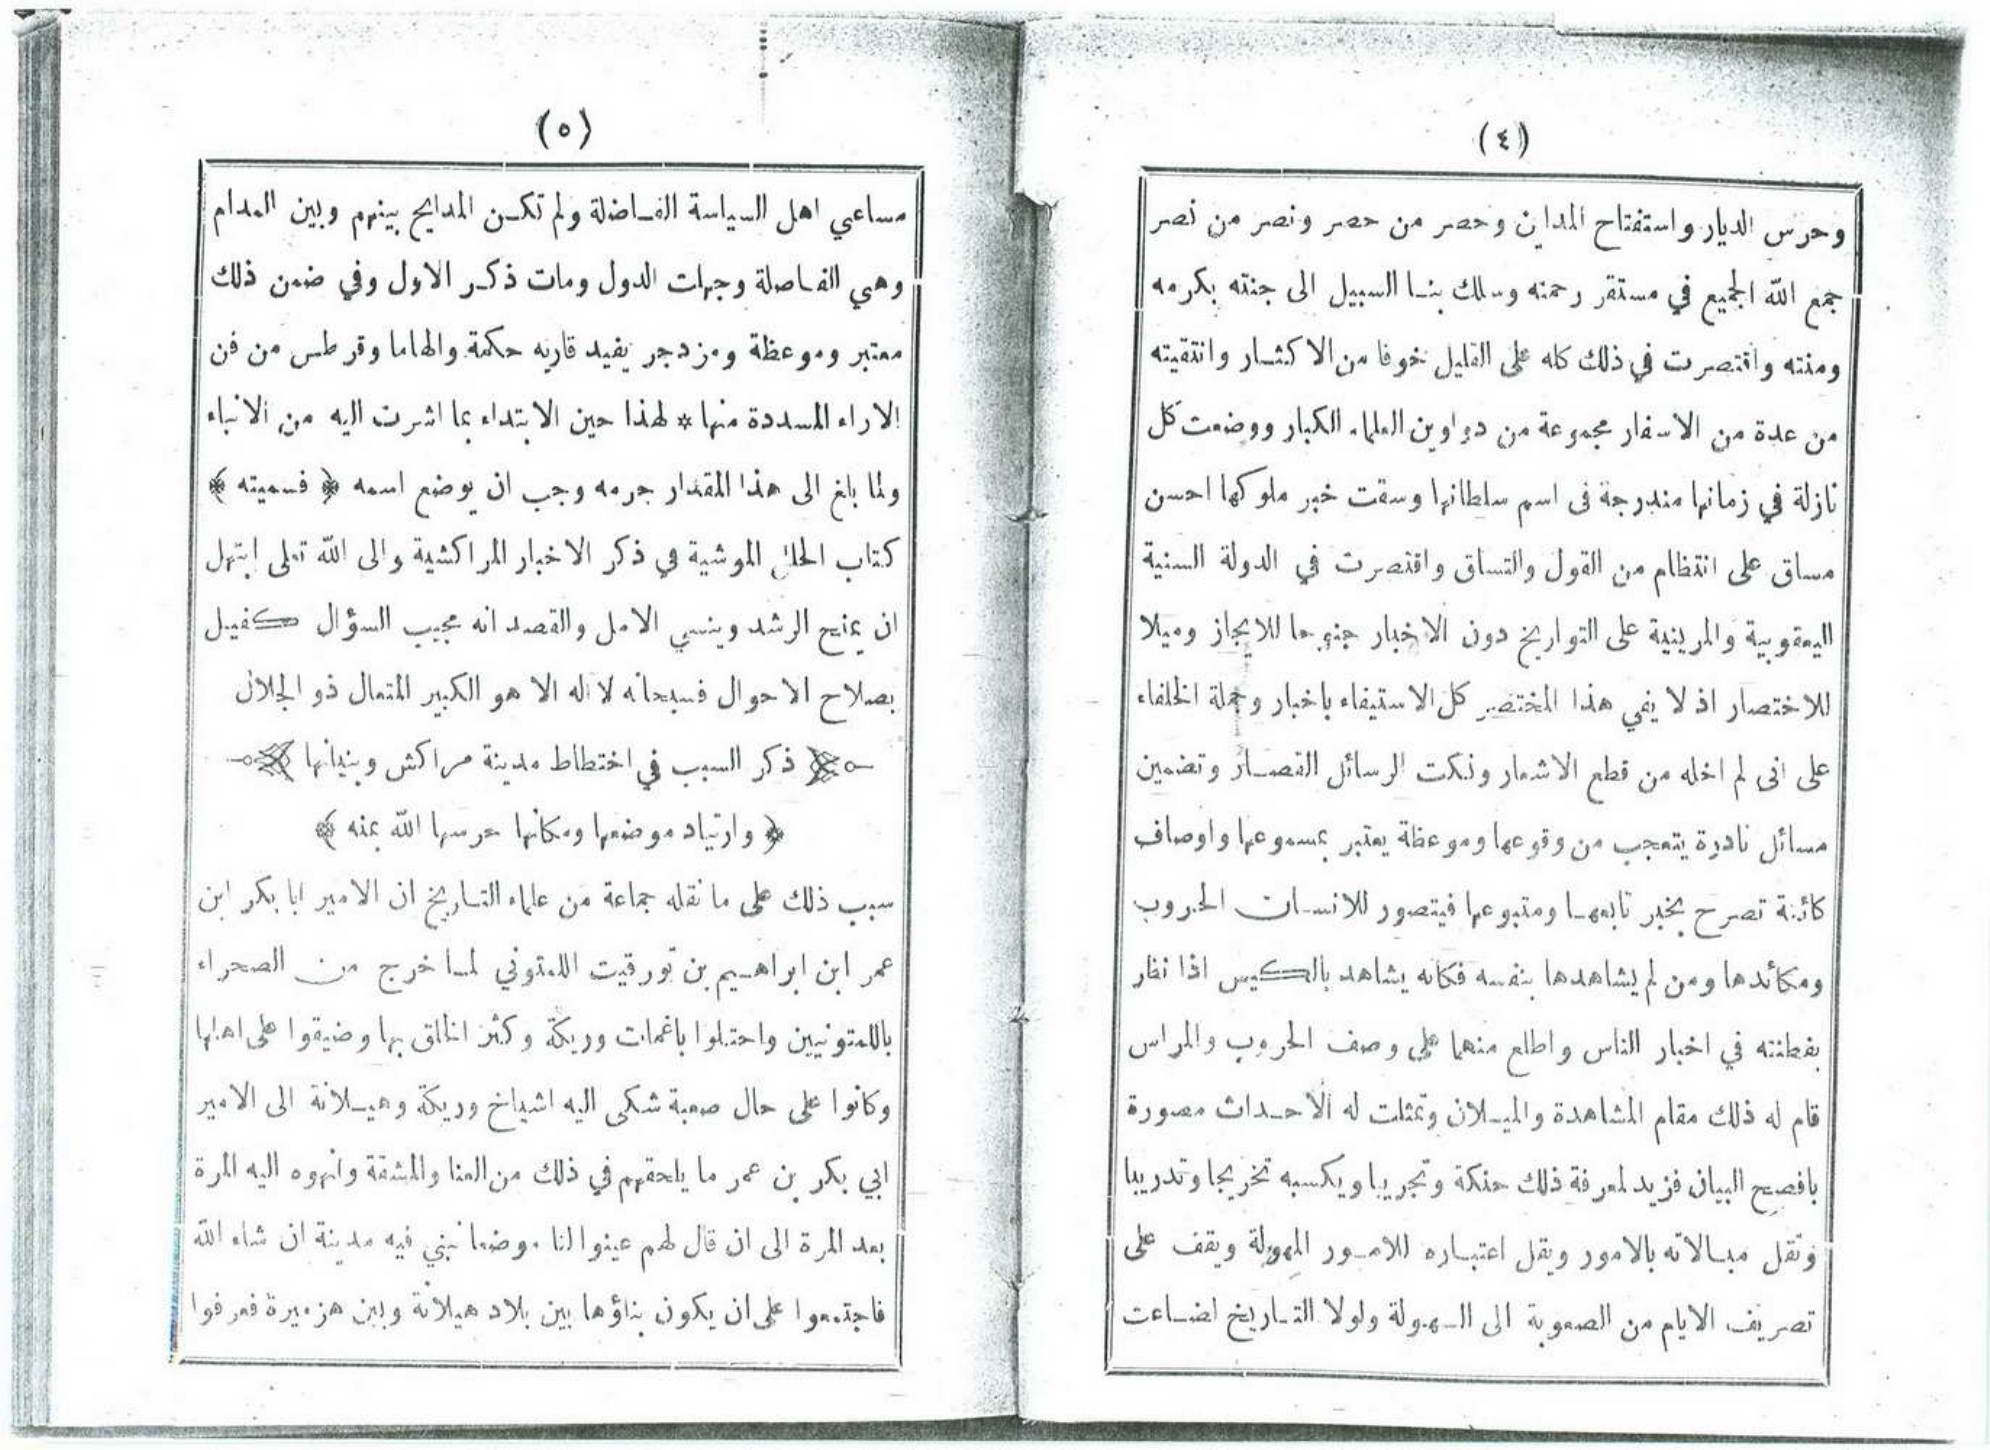 (٤)
وحرس الديار واستفتاح المداين وحصر من حصر ونصر من نصر
جمع الله الجميع في مستقر رحمته وسلك بنا السبيل الى جنته بكرمه
ومنته واقتصرت في ذلك كله على القليل خوفا من الاكثار وانتقيته
من عدة من الاسفار مجموعة من دواوين العلماء الكبار ووضعت كل
نازلة في زمانها مندرجة فى اسم سلطانها وسقت خبر ملوكها احسن
مساق على انتظام من القول والتساق واقتصرت في الدولة السنية
اليعقوبية والمرينية على التواريخ دون الاخبار جنوحا للايجاز وميلا
للاختصار اذ لا يفي هذا المختصر كل الاستيفاء باخبار وجملة الخلفاء
على انى لم اخله من قطع الاشعار ونكت الرسائل القصار وتضمين
مسائل نادرة يتعجب من وقوعها وموعظة يعتبر بمسموعها واوصاف
كائنة تصرح بخبر تابعها ومتبوعها فيتصور للانسان الحروب
ومكائدها ومن لم يشاهدها بنفسه فكانه يشاهد بالكيس اذا نظر
بفطنته في اخبار الناس واطلع منهما على وصف الحروب والمراس
قام له ذلك مقام المشاهدة والميلان وتمثلت له الاحداث مصورة
بافصح البيان فزيد لمعرفة ذلك حنكة وتجريبا ويكسبه تخريجا وتدريبا
وتقل مبالاته بالامور ويقل اعتباره للامور المهولة ويقف على
تصريف الايام من الصعوبة الى السهولة ولولا التاريخ لضاعت
(٥)
مساعي اهل السياسة الفاضلة ولم تكن المدايح بينهم وبين المدام
وهي الفاصلة وجهلت الدول ومات ذكر الاول وفي ضمن ذلك
معتبر وموعظة ومزدجر يفيد قاريه حكمة والهاما وقرطس من فن
الاراء المسددة منها * لهذا حين الابتداء بما اشرت اليه من الانباء
ولما بلغ الى هذا المقدار جرمه وجب ان يوضع اسمه ﴿ فسميته ﴾
كتاب الحلل الموشية في ذكر الاخبار المراكشية والى الله تعلى ابتهل
ان يمنح الرشد وينسي الامل والقصد انه مجيب السؤال كفيل
بصلاح الاحوال فسبحانه لا اله الا هو الكبير المتعال ذو الجلال
ذكر السبب في اختطاط مدينة مراكش وبنيانها
﴿ وارتياد موضعها ومكانها حرسها الله بمنه ﴾
سبب ذلك على ما نقله جماعة من علماء التاريخ ان الامير ابا بكر ابن
عمر ابن ابراهيم بن تورقيت اللمتوني لما خرج من الصحراء
باللمتونيين واحتلوا باغمات وريكة وكثر الخلق بها وضيقوا على اهلها
وكانوا على حال صعبة شكى اليه اشياخ وريكة وهيلانة الى الامير
ابي بكر بن عمر ما يلحقهم في ذلك من العنا والمشقة وانهوه اليه المرة
بعد المرة الى ان قال لهم عينوا لنا موضعا نبني فيه مدينة ان شاء الله
فاجتمعوا على ان يكون بناؤها بين بلاد هيلانة وبين هزميرة فعرفوا